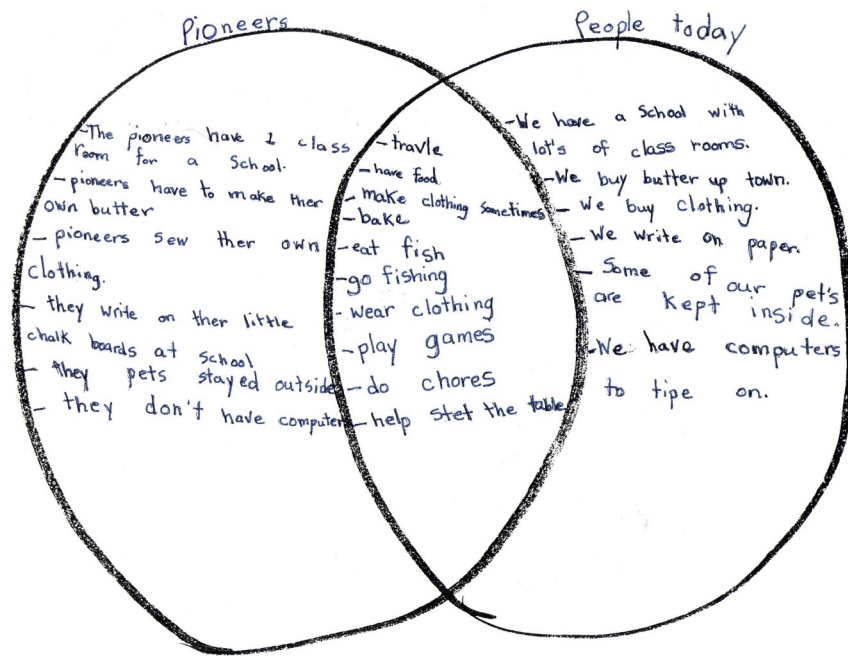 Pioneers
-The pioneers have 1 class
room for a School.
- pioneers have to make ther
own butter
- pioneers sew ther own
clothing.
- they write on ther little
chalk boards at school
- they pets stayed outside
- they don't have computer
- travle
- have food
- make clothing sometimes
- bake
- eat fish
- go fishing
- wear clothing
- play games
- do chores
- help stet the table
People today
- We have a School with
lot's of class rooms.
- We buy butter up town.
- We buy clothing.
- We write on paper.
- Some of our pet's
are kept inside.
- We have computers
to tipe on.